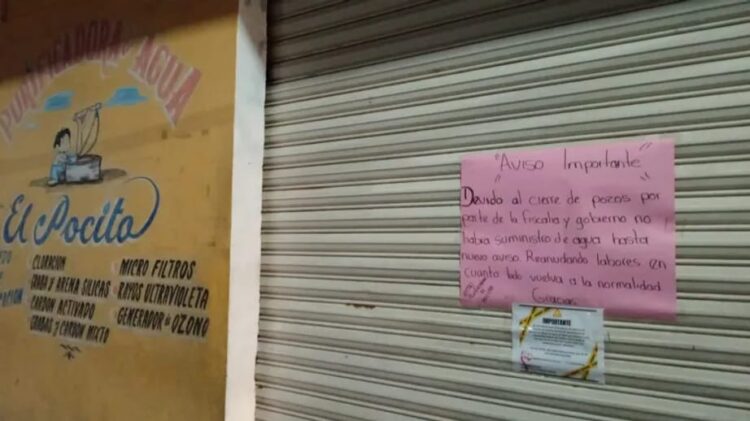 PURIFICADORA DE AGUA
El Pocito
CLORACION
GRAVA Y ARENA SILICAS
CARBON ACTIVADO
GRABAS Y CARBON MIXTO
MICRO FILTROS
RAYOS ULTRAVIOLETA
GENERADOR DE OZONO
"Aviso Importante"
Devido al cierre de pozos por
parte de la fiscalia y gobierno no
habia suministro de agua hasta
nuevo aviso. Reanudando labores en
cuanto todo vuelva a la normalidad
Gracias
IMPORTANTE